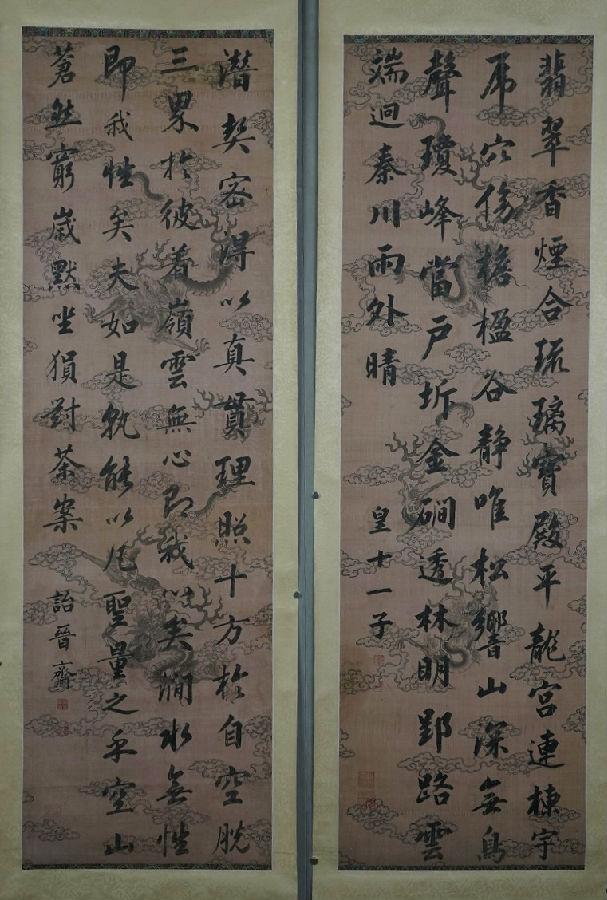 翡翠香煙合琉璃寶殿平龍宮連棟宇
虎穴傍檐楹谷静唯松響山深無鳥
聲瓊峰當戶坼金磵透林明郢路雲
端迥秦川雨外晴
皇十一子
潛契密得以真貫理照十方於自空脱
三累於彼着嶺雲無心即我以矣澗水無性
即我性矣夫如是孰能以凡聖量之乎空山
蒼然窮歲默坐對茶案
詒晉齋